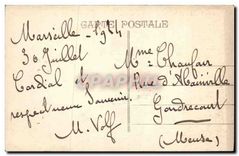 CARTE POSTALE
Marseille - 1924
30 Juillet
Cordial &
respectueux Souvenir.
M. Volf
Mme Chaufair
Rue d'Abainville
Gondrecourt
(Meuse)